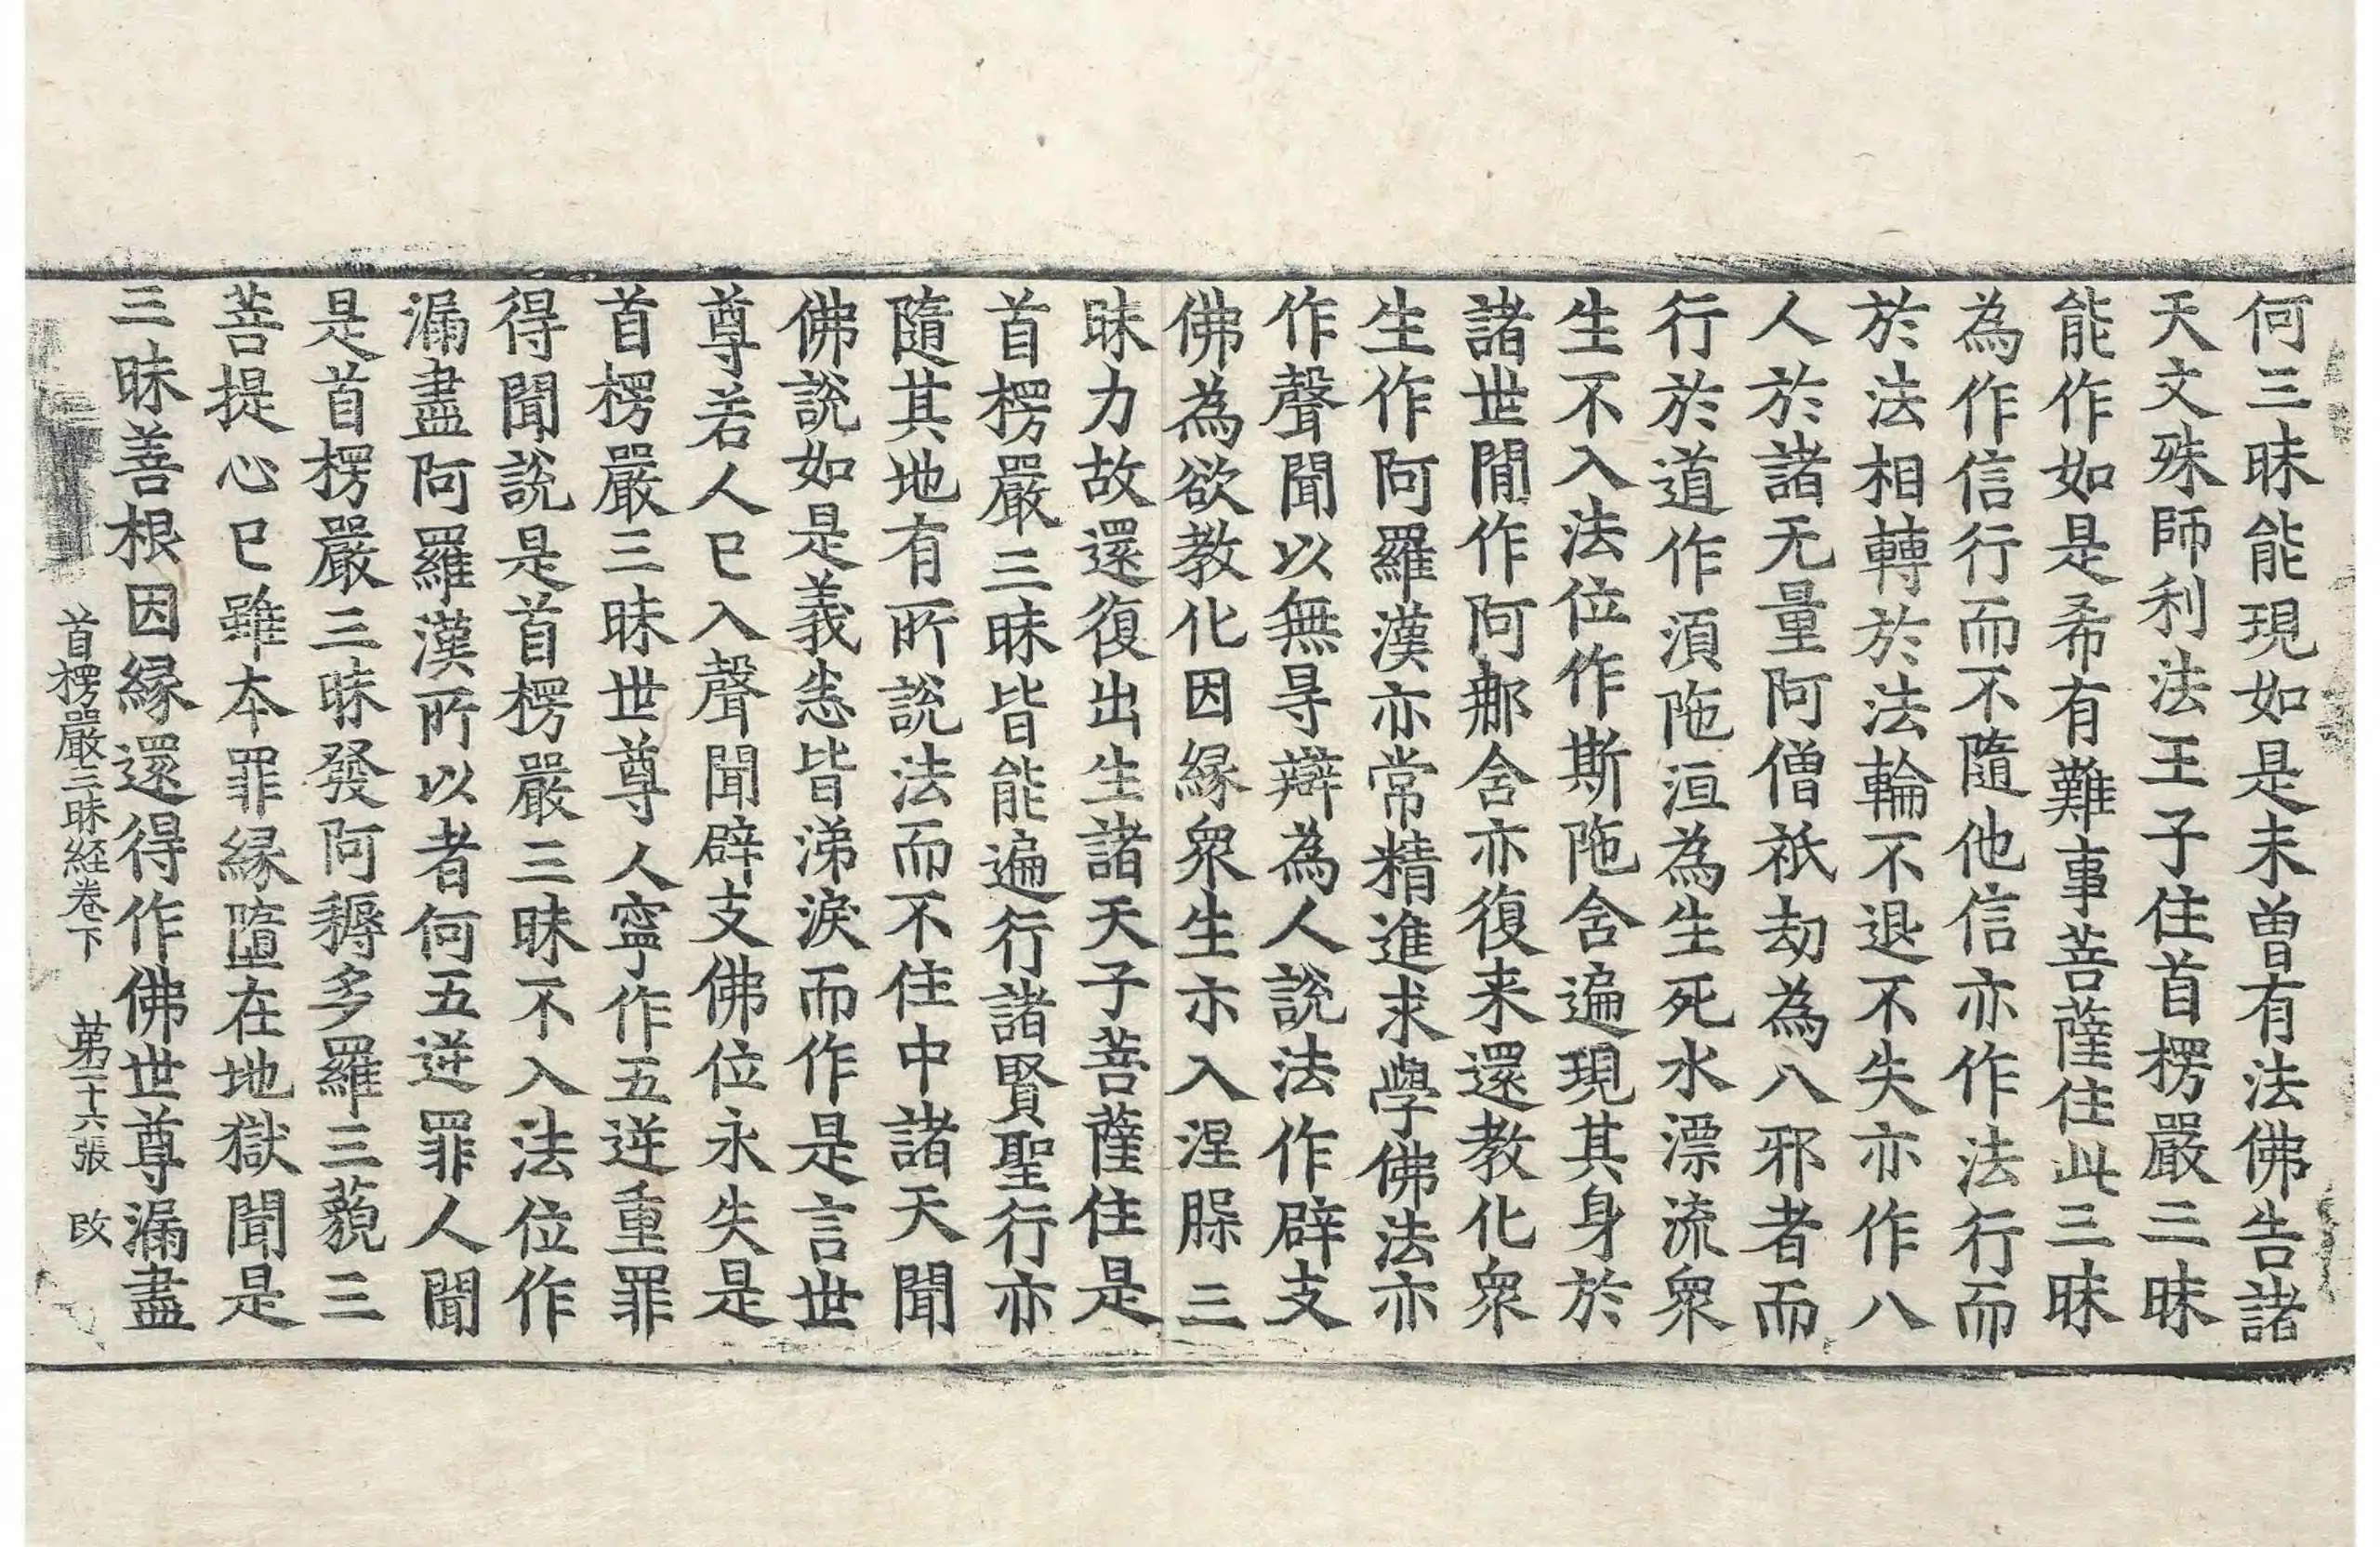 何三昧能現如是未曾有法佛告諸
天文殊師利法王子住首楞嚴三昧
能作如是希有難事菩薩住此三昧
為作信行而不隨他信亦作法行而
於法相轉於法輪不退不失亦作八
人於諸无量阿僧祇劫為八邪者而
行於道作湏陁洹為生死水漂流衆
生不入法位作斯陁含遍現其身於
諸世閒作阿那含亦復来還教化衆
生作阿羅漢亦常精進求學佛法亦
作聲聞以無㝵辯為人說法作辟支
佛為欲教化因緣衆生亦入涅槃三
昧力故還復出生諸天子菩薩住是
首楞嚴三昧皆能遍行諸賢聖行亦
隨其地有所說法而不住中諸天聞
佛說如是義悉皆涕淚而作是言世
尊若人已入聲聞辟支佛位永失是
首楞嚴三昧世尊人寧作五逆重罪
得聞說是首楞嚴三昧不入法位作
漏盡阿羅漢所以者何五逆罪人聞
是首楞嚴三昧發阿耨多羅三藐三
菩提心已雖本罪緣墮在地獄聞是
三昧善根因緣還得作佛世尊漏盡
首楞嚴三昧経卷下 第二十六張 改